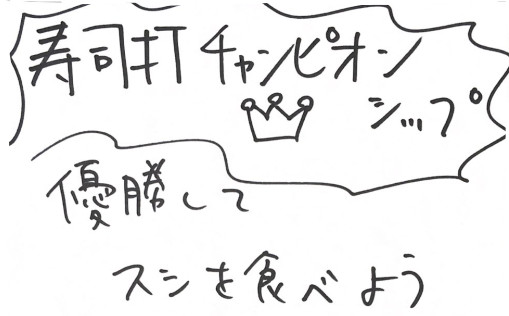 寿司打チャンピオン
シップ
優勝して
スシを食べよう